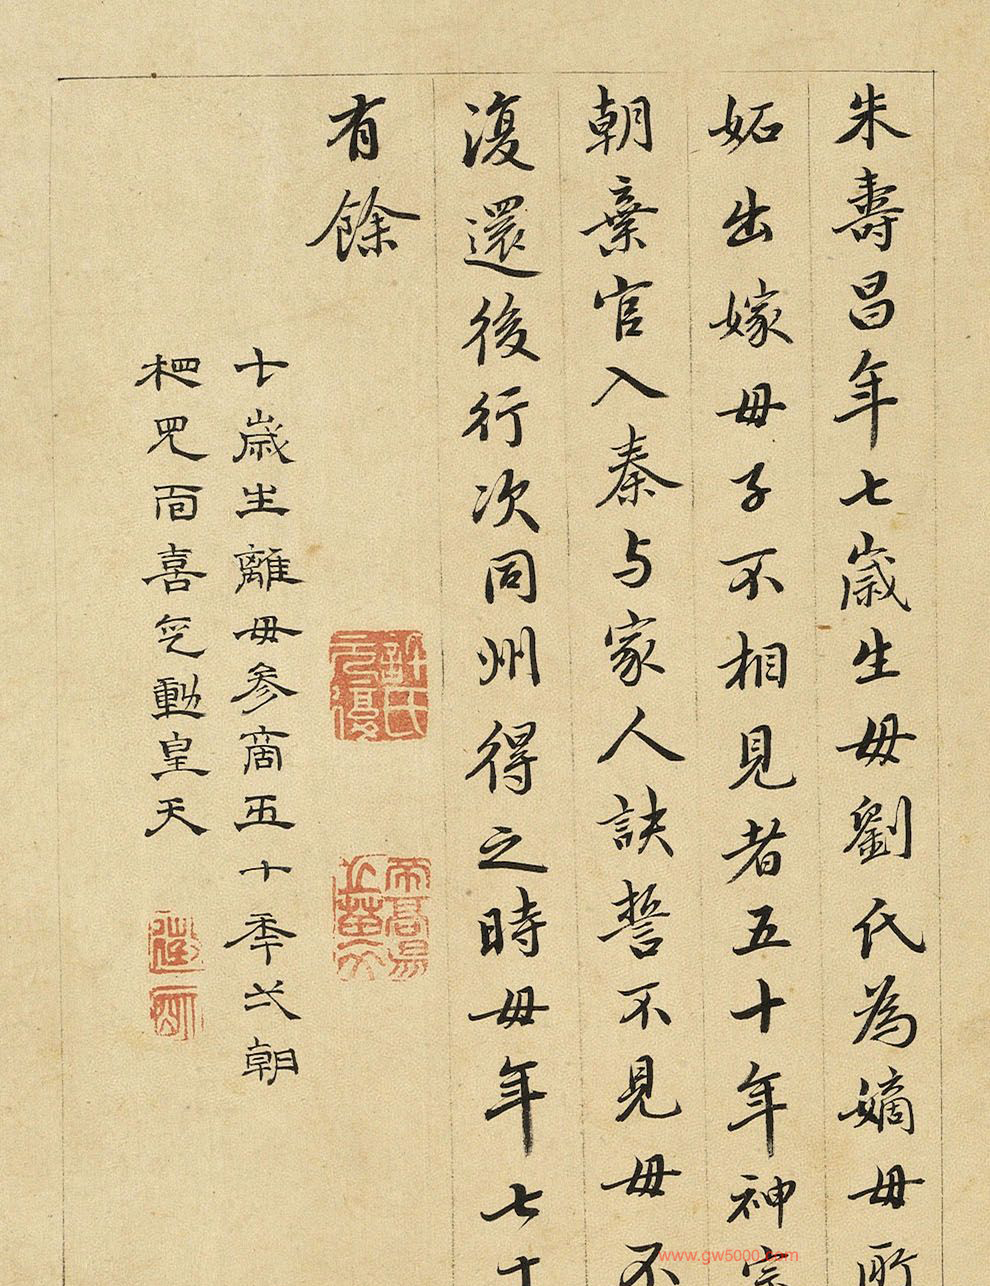 朱壽昌年七歳生母劉氏為嫡母所
妬出嫁母子不相見者五十年神宗
朝棄官入秦与家人訣誓不見母不
復還後行次同州得之時母年七十
有餘
七歳生離母參商五十季弌朝
相皃面喜气動皇天
許氏元復
www.gw5000.com